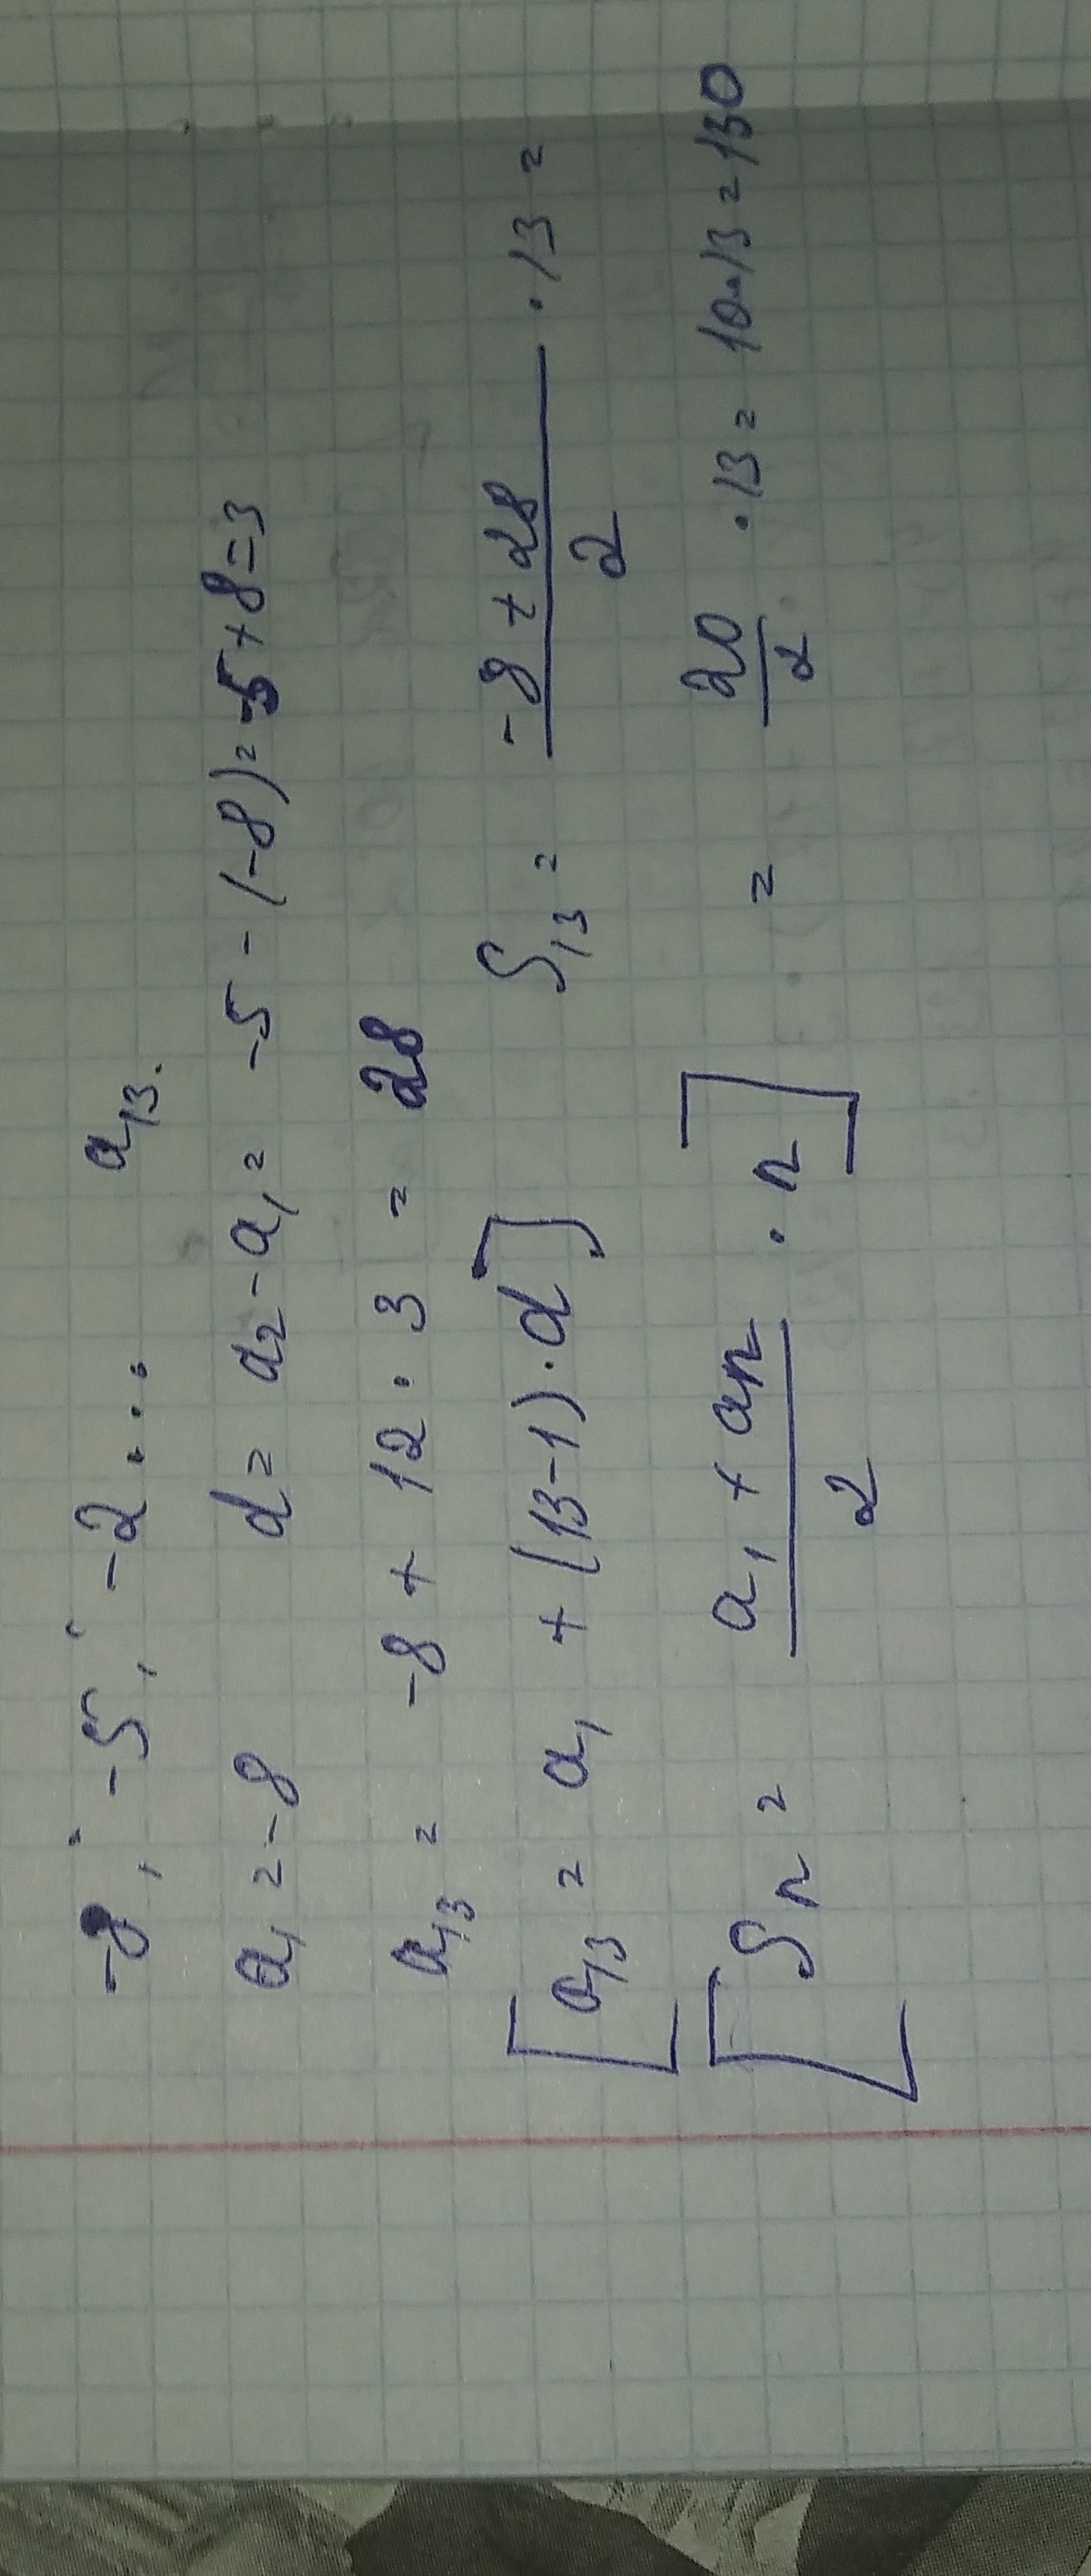 -8; -5; -2... a₁₃.
a₁ = -8 d = a₂ - a₁ = -5 - (-8) = -5 + 8 = 3
a₁₃ = -8 + 12 · 3 = 28
[a₁₃ = a₁ + (13-1) · d] S₁₃ = (-8 + 28)/2 · 13 =
[Sn = (a₁ + an)/2 · n] = 20/2 · 13 = 10·13 = 130